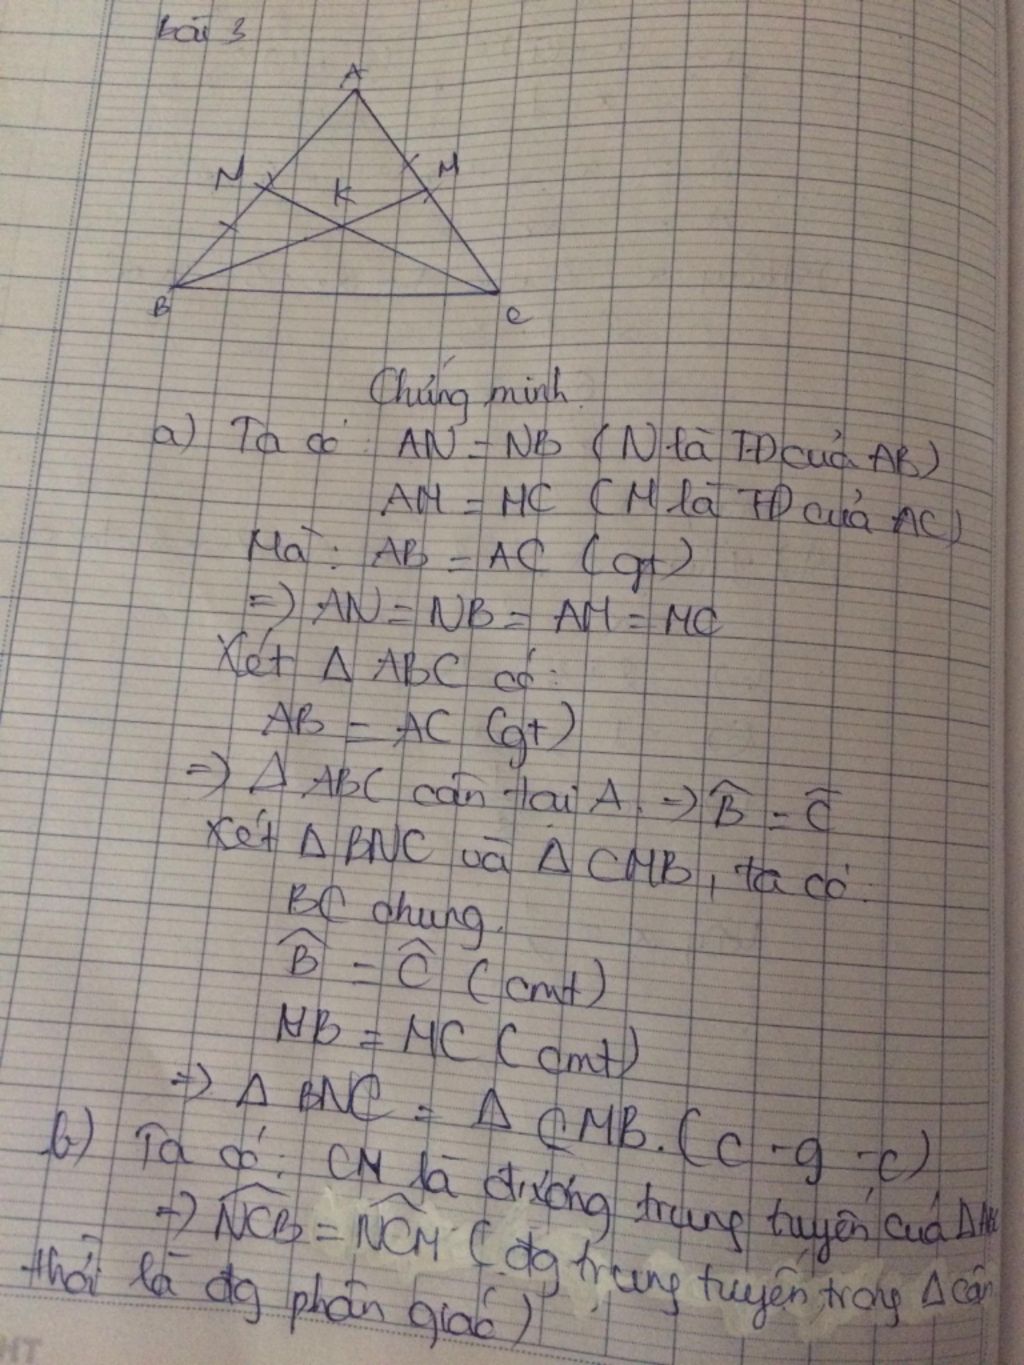 bài 3
A
N K M
B C
Chứng minh
a) Ta có: AN = NB (N là TĐ của AB)
AM = MC (M là TĐ của AC)
Mà: AB = AC (gt)
=) AN = NB = AM = MC
Xét Δ ABC có:
AB = AC (gt)
=) Δ ABC cân tại A. =) B̂ = Ĉ
Xét Δ BNC và Δ CMB, ta có:
BC chung.
B̂ = Ĉ (cmt)
NB = MC (cmt)
=) Δ BNC = Δ CMB. (c-g-c)
b) Ta có: CN là đường trung tuyến của Δ
=) NCB = NCM (đg trung tuyến trong Δ cân
là đg phân giác)